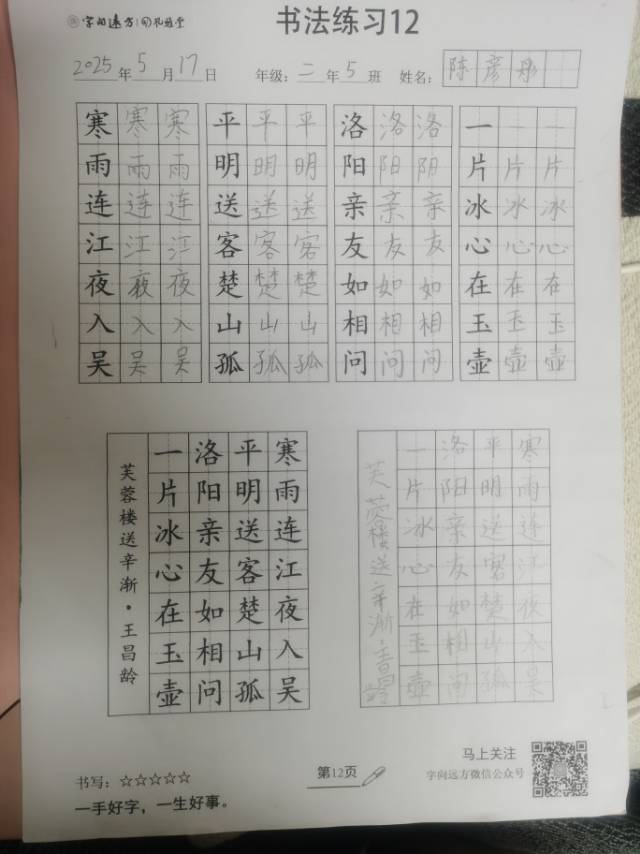 字向远方
书法练习12
2025年5月17日 年级:二年5班 姓名:陈彦彤
寒寒寒 平平平 洛洛洛 一一一
雨雨雨 明明明 阳阳阳 片片片
连连连 送送送 亲亲亲 冰冰冰
江江江 客客客 友友友 心心心
夜夜夜 楚楚楚 如如如 在在在
入入入 山山山 相相相 玉玉玉
吴吴吴 孤孤孤 问问问 壶壶壶
寒雨连江夜入吴
平明送客楚山孤
洛阳亲友如相问
一片冰心在玉壶
芙蓉楼送辛渐·王昌龄
寒雨连江夜入吴
平明送客楚山孤
洛阳亲友如相问
一片冰心在玉壶
芙蓉楼送辛渐·王昌龄
书写:☆☆☆☆☆
一手好字，一生好事。
第12页
马上关注
字向远方微信公众号